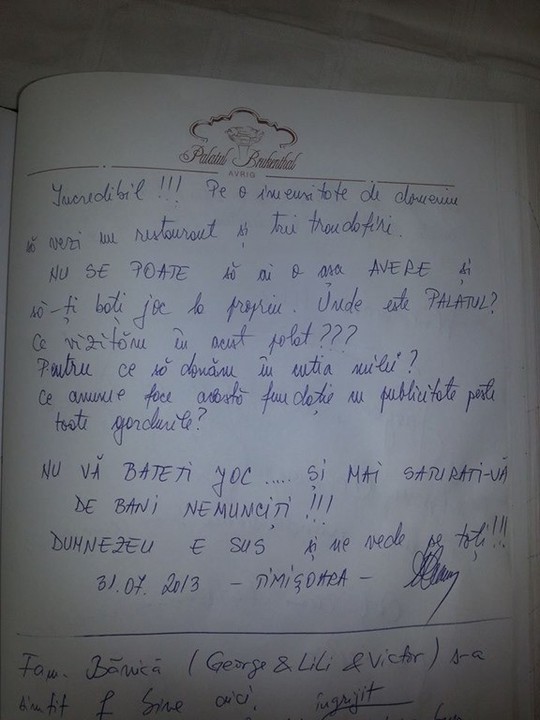 Palatul Brukenthal
AVRIG
Incredibil !!! Pe o imensitate de domeniu
să vezi un restaurant și trei trandafiri.
NU SE POATE să ai o așa AVERE și
să-ți bați joc la propriu. Unde este PALATUL?
Ce vizităm în acest palat???
Pentru ce să donăm în cutia milei?
Ce anume face această fundație cu publicitate peste
toate gardurile?
NU VĂ BATETI JOC .... ȘI MAI SATURATI-VĂ
DE BANI NEMUNCIȚI !!!
DUMNEZEU E SUS și ne vede pe toți!!!
31.07.2013 – TIMIȘOARA –
Fam. Bănică (George & Lili & Victor) s-a
simtit f bine aici, îngrijit